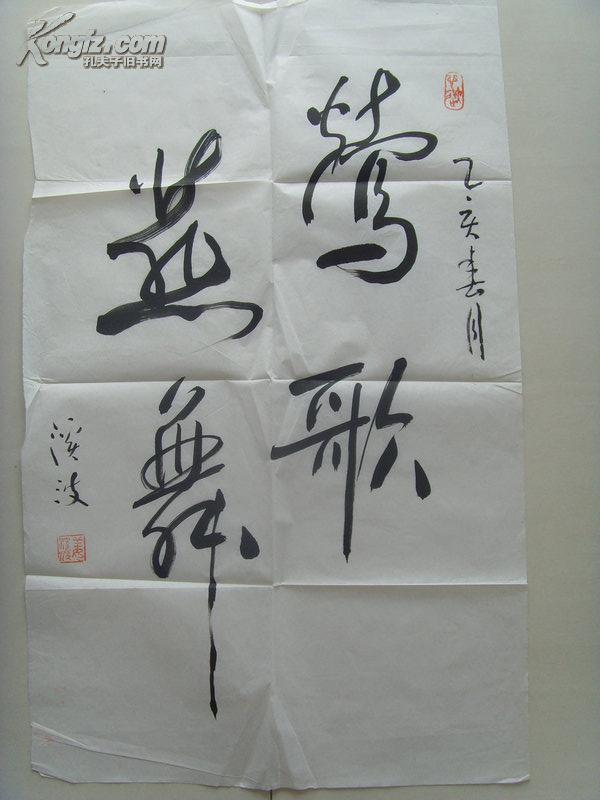 乙亥春月
莺歌
燕舞
溪波
Kongfz.com
孔夫子旧书网